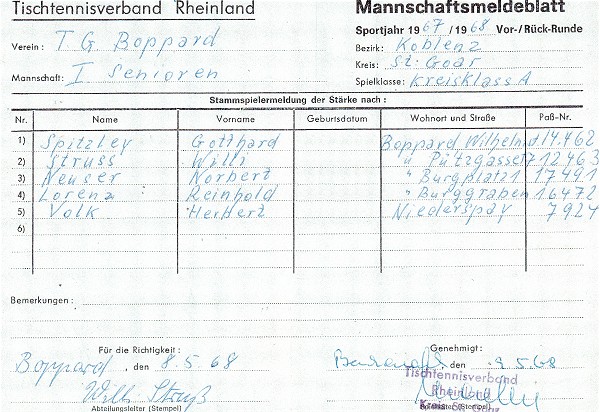 Tischtennisverband Rheinland
Mannschaftsmeldeblatt
Sportjahr 1967/1968 Vor-/Rück-Runde
Verein: T G Boppard
Bezirk: Koblenz
Kreis: St. Goar
Mannschaft: I Senioren
Spielklasse: Kreisklass A
Stammspielermeldung der Stärke nach:
Nr. Name Vorname Geburtsdatum Wohnort und Straße Paß-Nr.
1) Spitzley Gotthard Boppard, Wilhelm. 14.462
2) Struss Willi " Pützgasse 7 12463
3) Neuser Norbert " Burgplatz 1 17491
4) Lorenz Reinhold " Burggraben 16472
5) Volk Herbert Niederspay 7924
6)
Bemerkungen:
Für die Richtigkeit: Genehmigt:
Boppard, den 8.5.68 , den 9.5.68
Willi Struß
Tischtennisverband
Rheinland
Kreis St. Goar
Abteilungsleiter (Stempel) (Stempel)